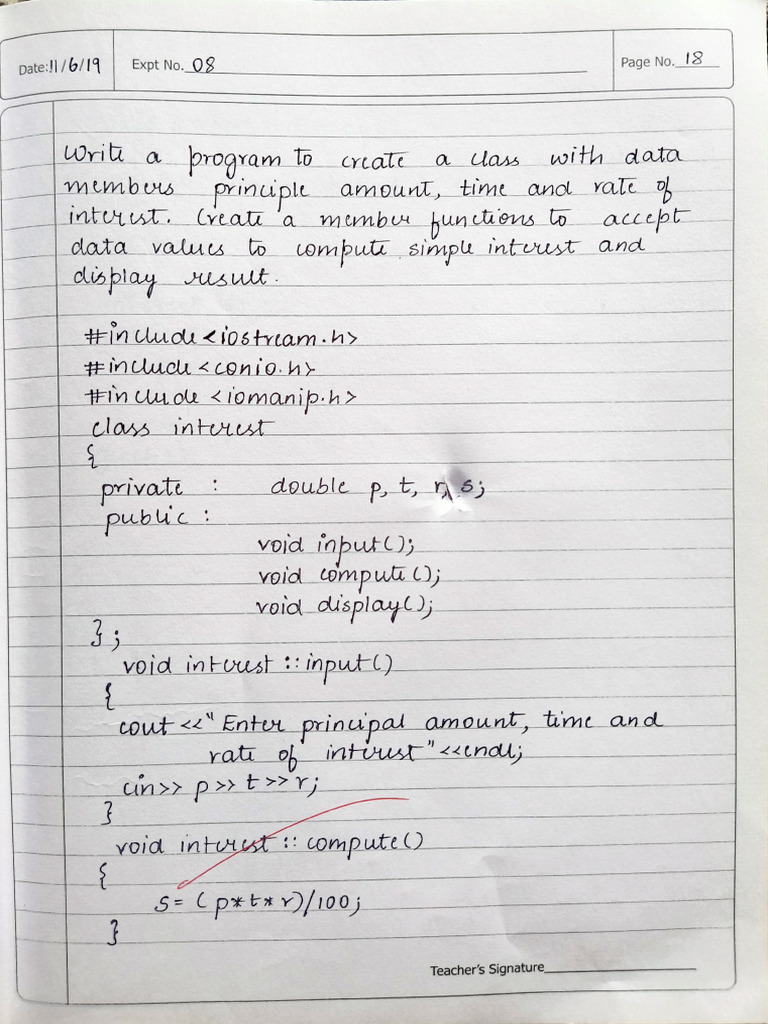 Date: 11/6/19 Expt No. 08 Page No. 18
Write a program to create a class with data
members principle amount, time and rate of
interest. Create a member functions to accept
data values to compute simple interest and
display result.
#include <iostream.h>
#include <conio.h>
#include <iomanip.h>
class interest
{
private : double p, t, r, s;
public :
void input();
void compute();
void display();
};
void interest :: input()
{
cout <<"Enter principal amount, time and
rate of interest"<<endl;
cin>> p >> t >> r;
}
void interest :: compute()
{
s = (p*t*r)/100;
}
Teacher's Signature